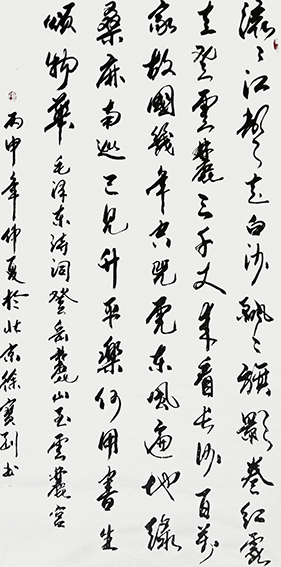 滚々江声走白沙飘々旗影卷红霞
直登雲麓三千丈来看长沙百万
家故國幾年空兕虎东風遍地绿
桑麻南巡已見升平樂何用書生
颂物華 毛泽东诗词登岳麓山至雲麓宫
丙申年仲夏於北京徐寶刚书